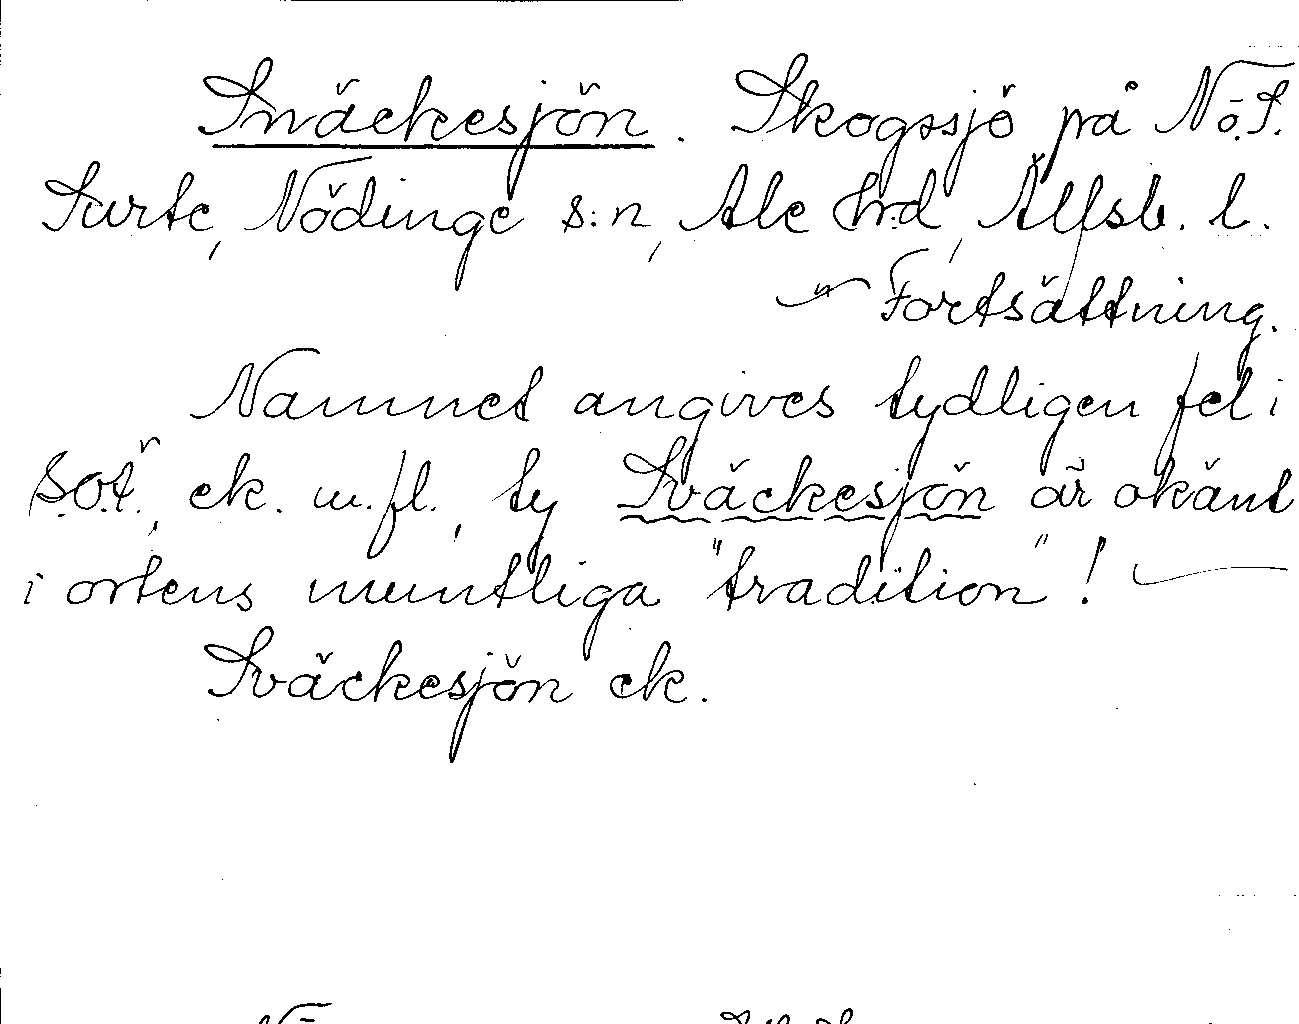 Snäckesjön. Skogssjö på Nö. S.
Surte, Nödinge s:n, Ale h:d, Älfsb. l.
Fortsättning.
Namnet angives tydligen fel i
S.O.Ä., ek. m.fl., ty Sväckesjön är okänt
i ortens muntliga "tradition"!
Sväckesjön ek.